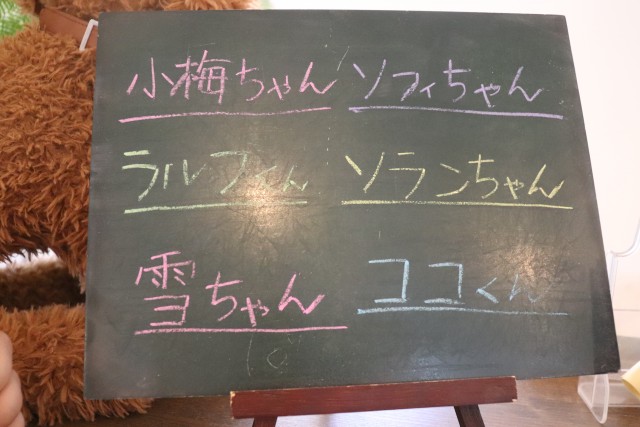 小梅ちゃん ソフィちゃん
ラルフくん ソランちゃん
雪ちゃん ココくん